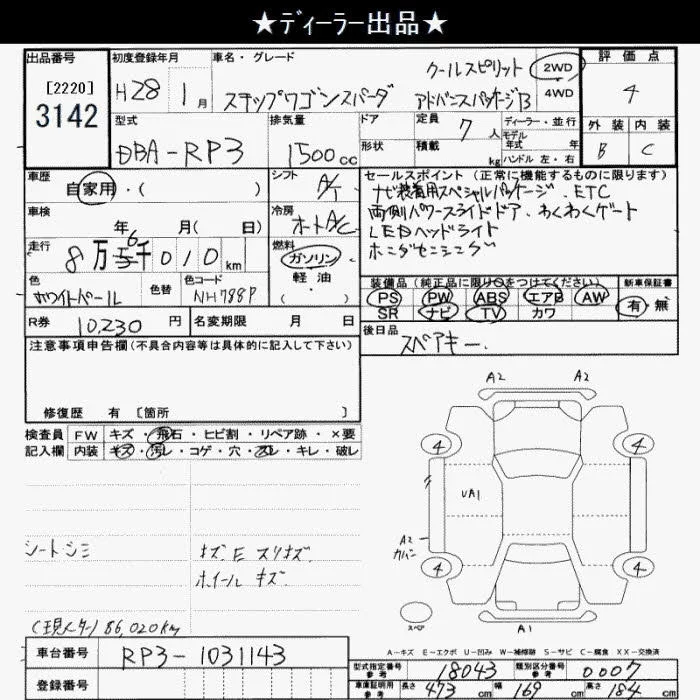 ★ディーラー出品★
出品番号
[2220]
3142
初度登録年月
H28 1月
車名・グレード
ステップワゴンスパーダ
クールスピリット
アドバンスパッケージB
2WD
4WD
評価点
4
外装 内装
B C
型式
DBA-RP3
排気量
1500cc
ドア
形状
定員 7人
積載 kg
ディーラー・並行
モデル
年式 年
ハンドル 左・右
車歴
自家用・( )
シフト
A/T
セールスポイント (正常に機能するものに限ります)
ナビ装着用スペシャルパッケージ. ETC
両側パワースライドドア. わくわくゲート
LEDヘッドライト
ホンダセンシング
車検
年 月( 日)
冷房
オートA/C
走行
8万6千010km
燃料
ガソリン
軽・油
( )
色
ホワイトパール
色替
色コード
NH788P
装備品 (純正品に限り○をつけてください)
PS PW ABS エアB AW
SR ナビ TV カワ
新車保証書
有・無
R券 10,230 円
名変期限 月 日
後日品
スペアキー.
注意事項申告欄(不具合内容等は具体的に記入して下さい)
修復歴 有 [箇所 ]
検査員
記入欄
FW キズ・飛石・ヒビ割・リペア跡・×要
内装 キズ・汚レ・コゲ・穴・スレ・キレ・破レ
シートシミ
キズ E スリキズ
ホイールキズ
(現メーター) 86,020km
A2 A2
4 4
UA1
A2
カバン
4 4
スペア
A1
A-キズ E-エクボ U-凹み W-補修跡 S-サビ C-腐食 XX-交換済
車台番号 RP3-1031143
登録番号
型式指定番号
参考
18043
類別区分番号
参考
0007
車庫証明用
参考
長さ 473 cm 幅 169 cm 高さ 184 cm